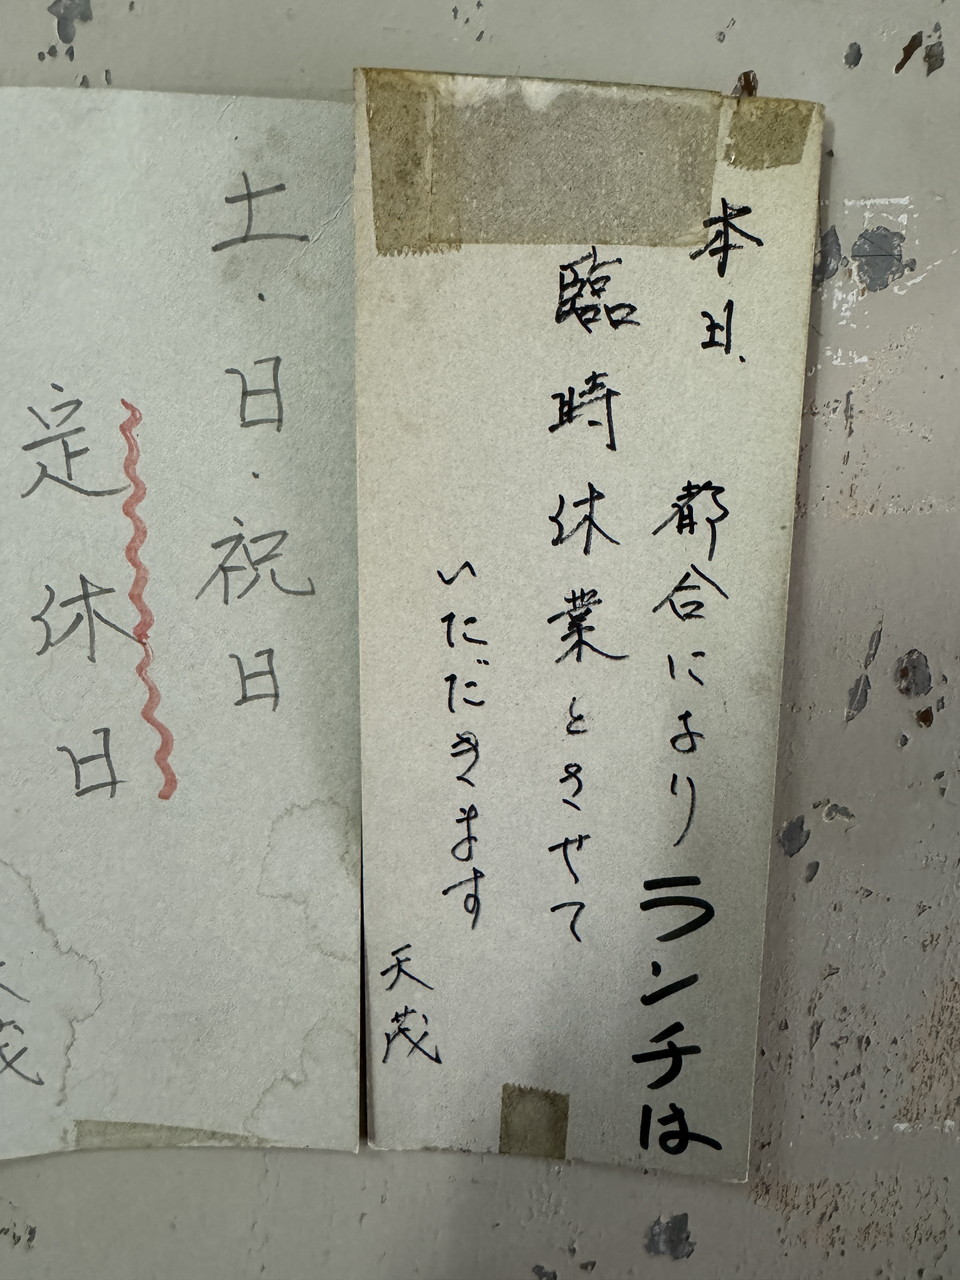 本日、都合によりランチは
臨時休業とさせて
いただきます
天茂
土・日・祝日
定休日
天茂